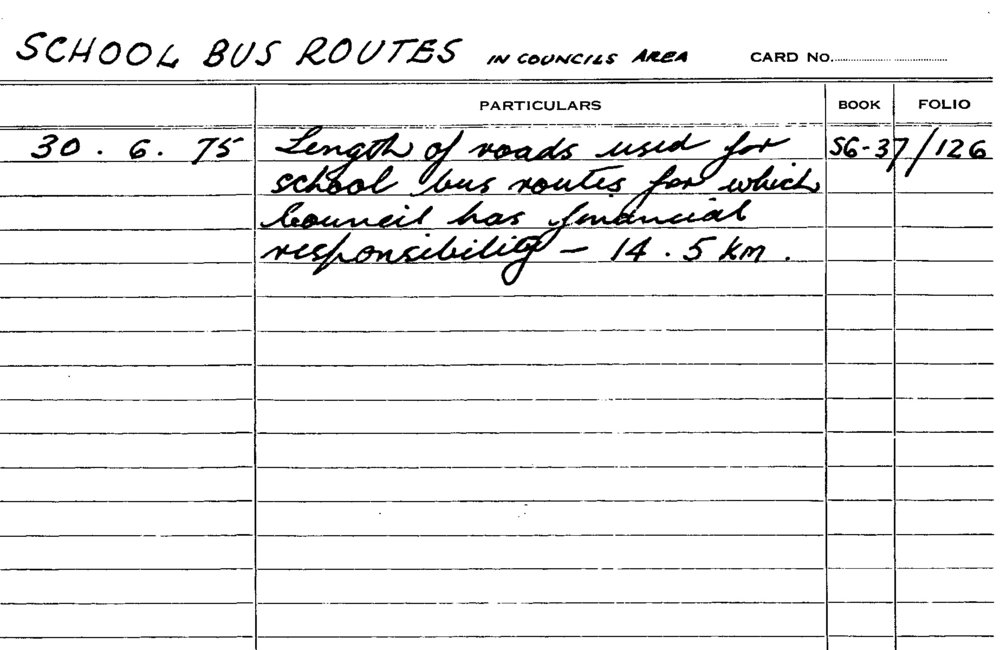 SCHOOL BUS ROUTES IN COUNCILS AREA CARD NO.
PARTICULARS BOOK FOLIO
30.6.75 Length of roads used for S6-37/126
school bus routes for which
Council has financial
responsibility – 14.5 km.